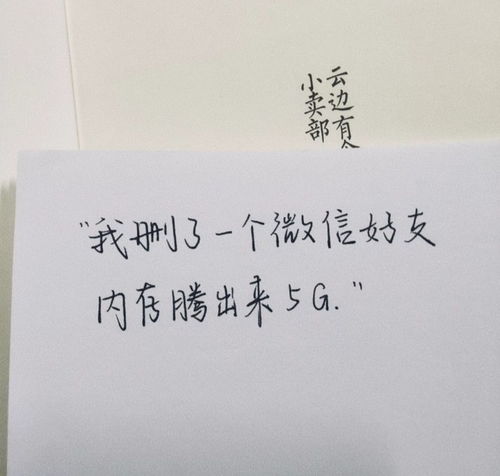 云边有个
小卖部
“我删了一个微信好友
内存腾出来5G.”